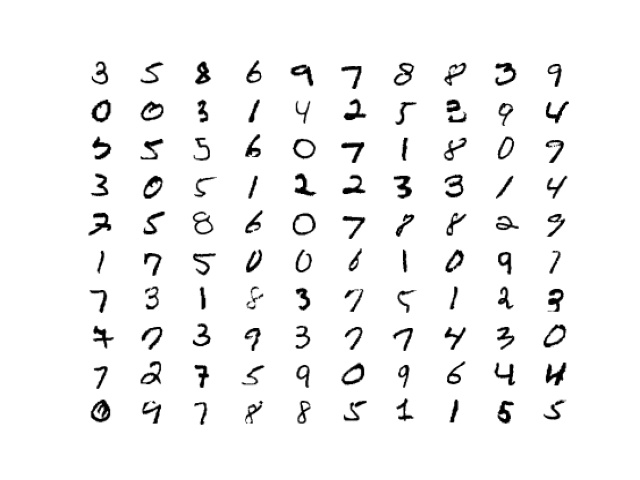 3 5 8 6 9 7 8 8 3 9
0 0 3 1 4 2 5 3 9 4
5 5 5 6 0 7 1 8 0 9
3 0 5 1 2 2 3 3 1 4
2 5 8 6 0 7 8 8 2 9
1 7 5 0 0 6 1 0 9 7
7 3 1 8 3 7 5 1 2 3
7 7 3 9 3 7 7 4 3 0
7 2 7 5 9 0 9 6 4 4
0 9 7 8 8 5 1 1 5 5